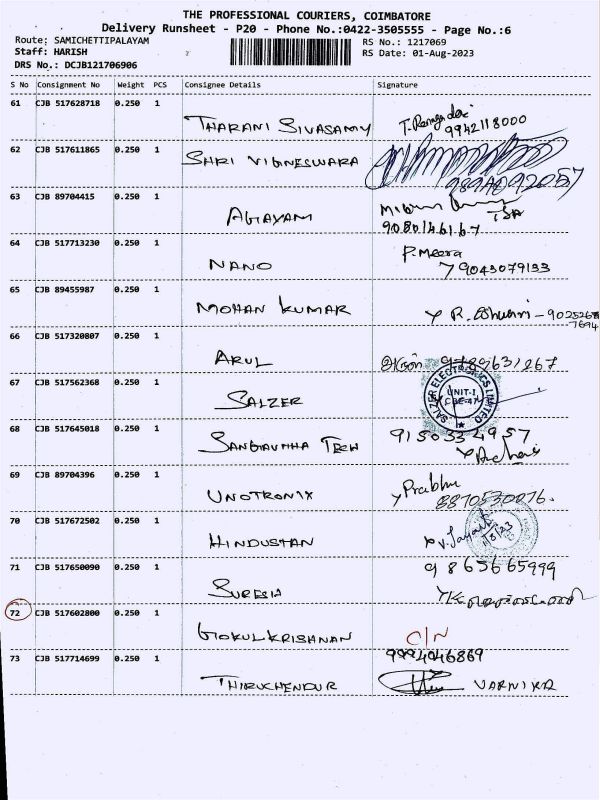 THE PROFESSIONAL COURIERS, COIMBATORE
Delivery Runsheet - P20 - Phone No.:0422-3505555 - Page No.:6
Route: SAMICHETTIPALAYAM RS No.: 1217069
Staff: HARISH RS Date: 01-Aug-2023
DRS No.: DCJB121706906
S No Consignment No Weight PCS Consignee Details Signature
61 CJB 517628718 0.250 1
THARANI SIVASAMY 9942118000
62 CJB 517611865 0.250 1
SHRI VIGNESWARA
63 CJB 89704415 0.250 1
9080146167
64 CJB 517713230 0.250 1 P. Meera
NANO 79043079133
65 CJB 89455987 0.250 1
MOHAN KUMAR
66 CJB 517320807 0.250 1
ARUL
67 CJB 517562368 0.250 1 SALZER ELECTRONICS LIMITED
UNIT-I
CBE-47
SALZER
68 CJB 517645018 0.250 1 9150334957
TECH
69 CJB 89704396 0.250 1 Prabhu
UNOTRONIX 8870530076.
70 CJB 517672502 0.250 1 1/8/23
HINDUSTAN
71 CJB 517650090 0.250 1 9865665999
SURESH
72 CJB 517602800 0.250 1
GOKULKRISHNAN C/N
73 CJB 517714699 0.250 1 9994046869
THIRUCHENDUR VARNIKA